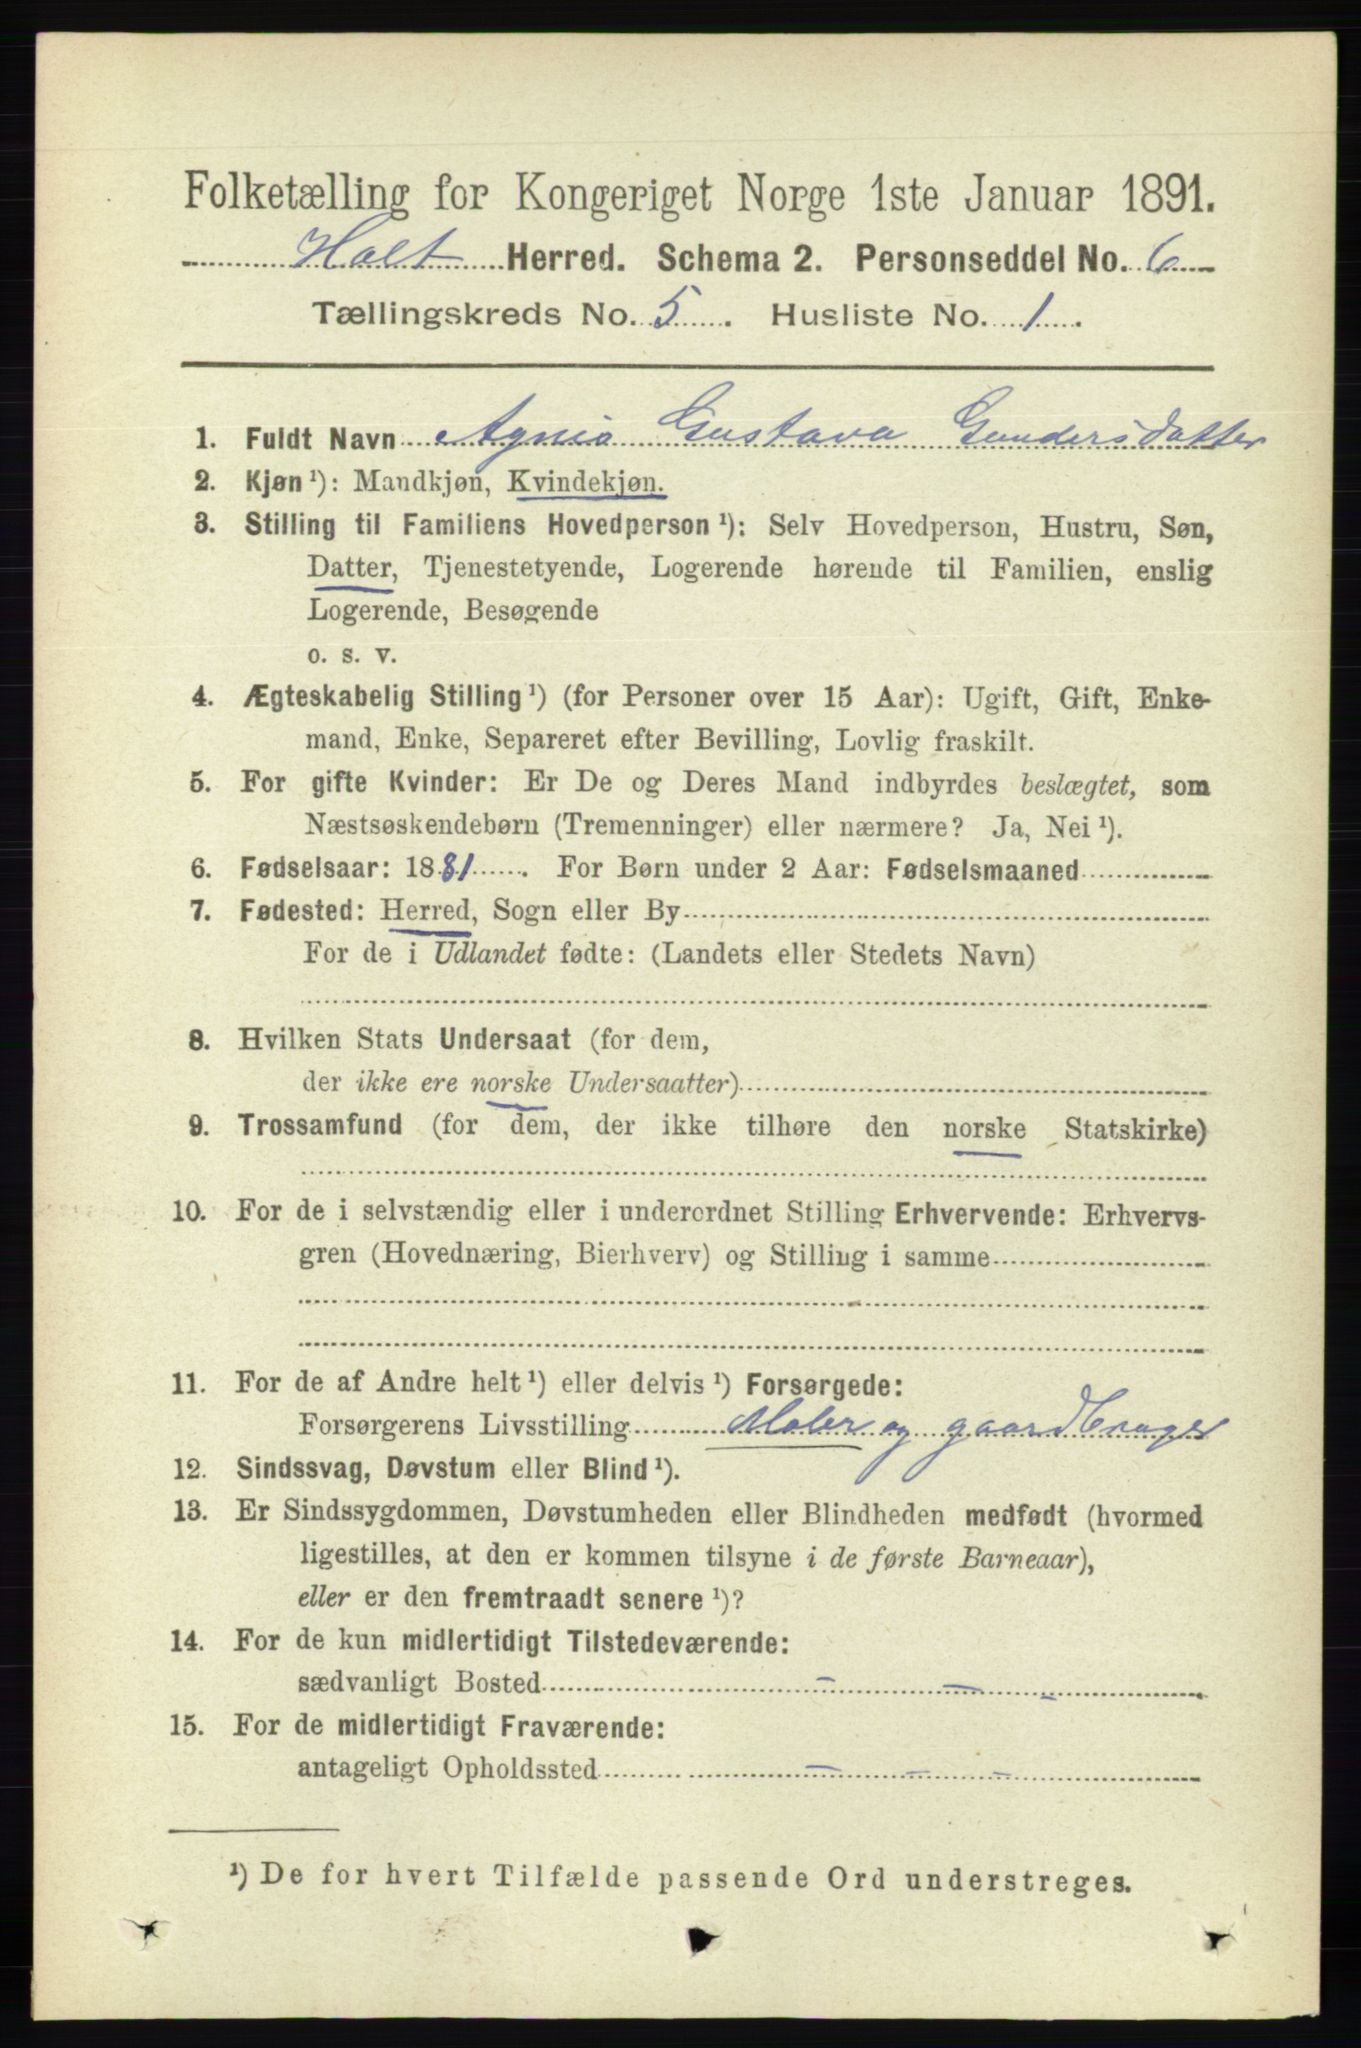 Folketælling for Kongeriget Norge 1ste Januar 1891.
Holt Herred. Schema 2. Personseddel No. 6
Tællingskreds No. 5. Husliste No. 1.
1. Fuldt Navn Agnia Gustava Gundersdatter
2. Kjøn ¹): Mandkjøn, Kvindekjøn.
3. Stilling til Familiens Hovedperson ¹): Selv Hovedperson, Hustru, Søn,
Datter, Tjenestetyende, Logerende hørende til Familien, enslig
Logerende, Besøgende
o. s. v.
4. Ægteskabelig Stilling ¹) (for Personer over 15 Aar): Ugift, Gift, Enke-
mand, Enke, Separeret efter Bevilling, Lovlig fraskilt.
5. For gifte Kvinder: Er De og Deres Mand indbyrdes beslægtet, som
Næstsøskendebørn (Tremenninger) eller nærmere? Ja, Nei ¹).
6. Fødselsaar: 1881. For Børn under 2 Aar: Fødselsmaaned
7. Fødested: Herred, Sogn eller By
For de i Udlandet fødte: (Landets eller Stedets Navn)
8. Hvilken Stats Undersaat (for dem,
der ikke ere norske Undersaatter)
9. Trossamfund (for dem, der ikke tilhøre den norske Statskirke)
10. For de i selvstændig eller i underordnet Stilling Erhvervende: Erhvervs-
gren (Hovednæring, Bierhverv) og Stilling i samme
11. For de af Andre helt ¹) eller delvis ¹) Forsørgede:
Forsørgerens Livsstilling Maler og gaardbruger
12. Sindssvag, Døvstum eller Blind ¹).
13. Er Sindssygdommen, Døvstumheden eller Blindheden medfødt (hvormed
ligestilles, at den er kommen tilsyne i de første Barneaar),
eller er den fremtraadt senere ¹)?
14. For de kun midlertidigt Tilstedeværende:
sædvanligt Bosted - - -
15. For de midlertidigt Fraværende:
antageligt Opholdssted - - -
¹) De for hvert Tilfælde passende Ord understreges.